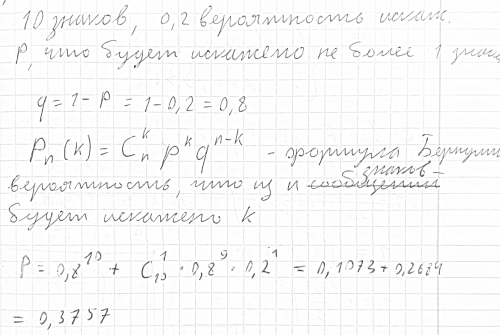 10 знаков, 0,2 вероятность искаж.
P, что будет искажено не более 1 знака
q = 1 - P = 1 - 0,2 = 0,8
Pn(k) = C_n^k p^k q^{n-k} - формула Бернулли
вероятность, что из n сообщений знаков
будет искажено k
P = 0,8^10 + C_10^1 · 0,8^9 · 0,2^1 = 0,1073 + 0,2684
= 0,3757